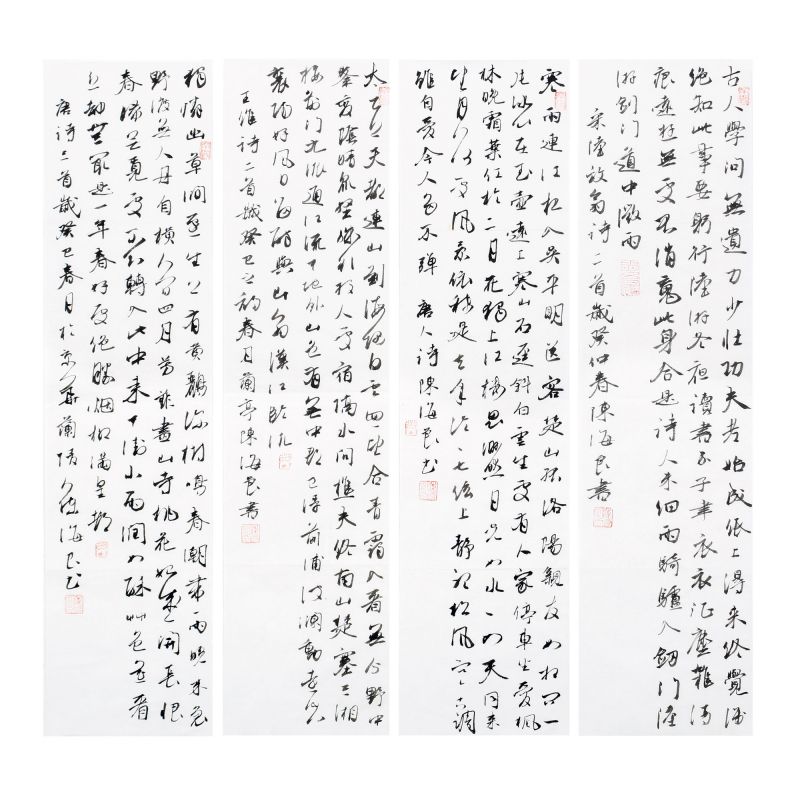 古人學問無遺力少壯功夫老始成紙上得來終覺淺
絕知此事要躬行陸游冬夜讀書示子聿衣征塵雜酒
痕遠遊無處不消魂此身合是詩人未細雨騎驢入劍門陸
游劍門道中微雨
宋陸放翁詩二首歲癸仲春陳海良書
寒雨連江夜入吳平明送客楚山孤洛陽親友如相問一
片冰心在玉壺遠上寒山石徑斜白雲生處有人家停車坐愛楓
林晚霜葉紅於二月花獨上江樓思渺然月光如水水如天同來
望月人何處風景依稀似去年泠泠七弦上靜聽松風寒古調
雖自愛今人多不彈 唐人詩陳海良書
太乙近天都連山到海隅白雲迴望合青靄入看無分野中
峰變陰晴眾壑殊欲投人處宿隔水問樵夫終南山楚塞三湘
接荊門九派通江流天地外山色有無中郡邑浮前浦波瀾動遠空
襄陽好風日留醉與山翁漢江臨汎
王維詩二首歲癸巳之初春月蘭亭陳海良書
獨憐幽草澗邊生上有黃鸝深樹鳴春潮帶雨晚來急
野渡無人舟自橫人間四月芳菲盡山寺桃花始盛開長恨
春歸無覓處不知轉入此中來天街小雨潤如酥草色遙看
近卻無最是一年春好處絕勝煙柳滿皇都
唐詩三首歲癸巳春月於京華蘭陵人海良書